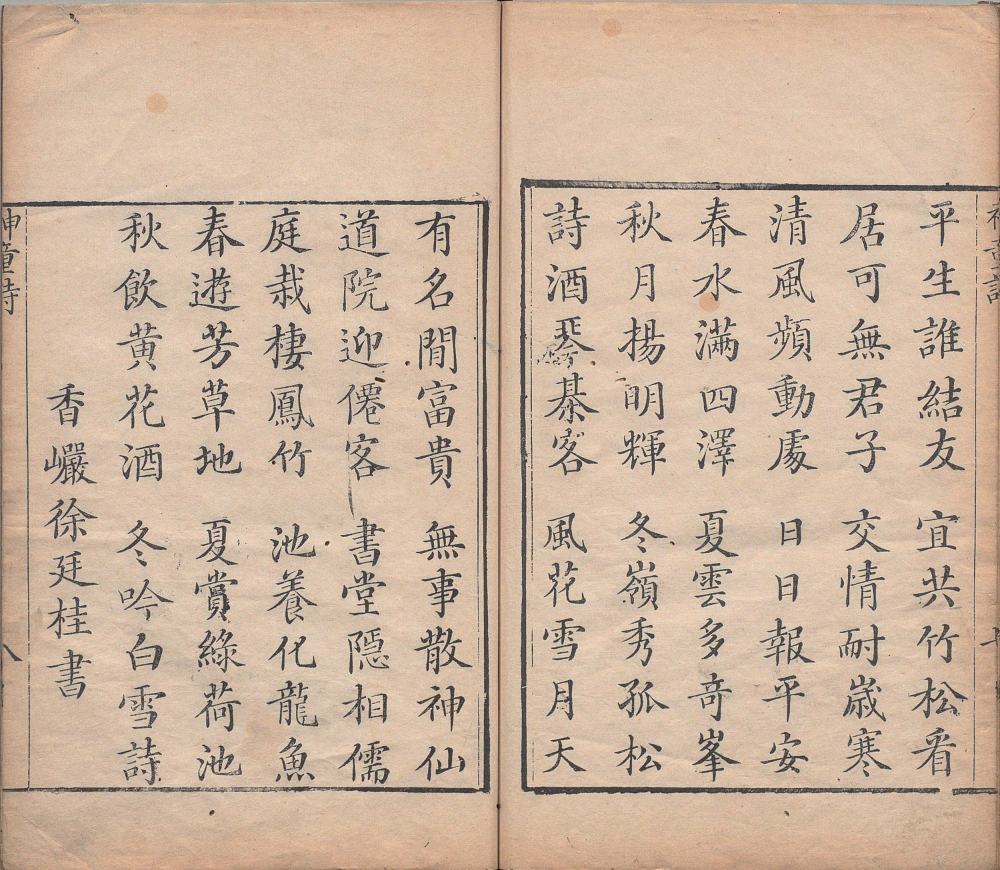 平生誰結友　宜共竹松看
居可無君子　交情耐歳寒
清風頻動處　日日報平安
春水滿四澤　夏雲多竒峯
秋月揚明輝　冬嶺秀孤松
詩酒琴棊客　風花雪月天
有名閒富貴　無事散神仙
道院迎僊客　書堂隱相儒
庭栽棲鳳竹　池養化龍魚
春遊芳草地　夏賞綠荷池
秋飲黄花酒　冬吟白雪詩
香巗徐廷桂書
神童詩
八